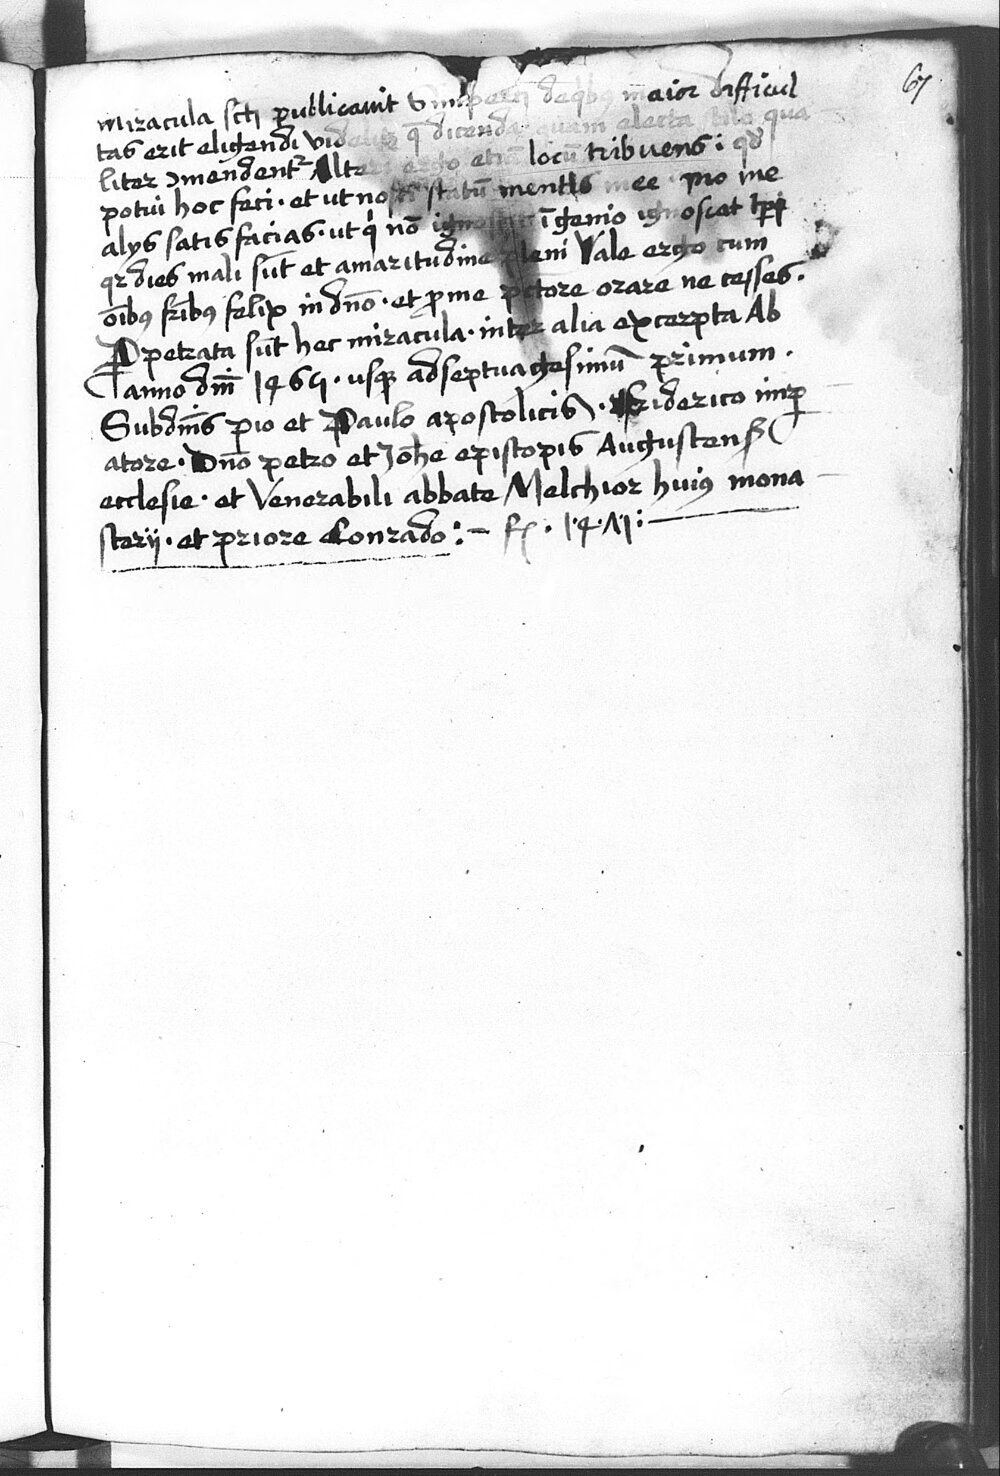 67
miracula scti publicauit Simperti de qbus maior difficul
tas erit eligendi videlicz q dicenda quam electa stilo qua
liter ɔmendentr Alteri ergo etiā locū tribuens : qd
potui hoc feci · et ut nosti statū mentis mee · pro me
alys satis facias · ut qi nō ignoscit īgenio ignoscat tpi
qr dies mali sūt et amaritudine pleni Vale ergo cum
oībus fribus felix in dno · et p me pctore orare ne cesses ·
Ppetrata sūt hec miracula · inter alia excerpta Ab
anno dni 1465 · usqz ad septuagesimū primum ·
Sub dnis pio et Paulo apostolicis · Friderico imp
atore · Dno petro et Johe epistopis Augustens
ecclesie · et Venerabili abbate Melchior huius mona
sterij · et priore Conrado : – · 1·4·Λ1 :